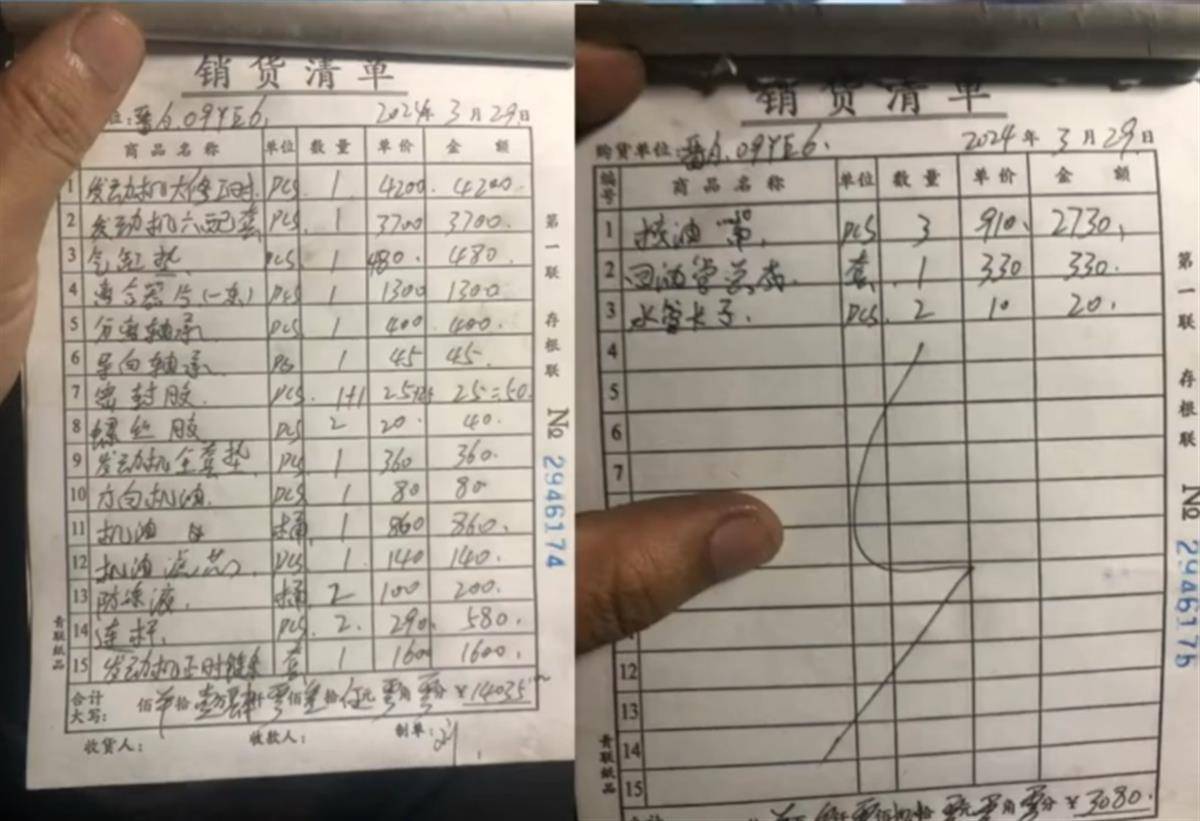 销货清单
位:晋A.09YE6. 2024年3月29日
商品名称 单位 数量 单价 金额
1 发动机大修工时 PCS 1 4200. 4200
2 发动机六配套 PCS. 1 3700 3700.
3 气缸垫 PCS. 1 480. 480.
4 离合器片(一套) PCS 1 1300 1300
5 分离轴承 PCS 1 400 400.
6 导向轴承 PCS 1 45 45.
7 密封胶 PCS. 1+1 25 25=50
8 螺丝胶 PCS 2 20. 40.
9 发动机全套垫 PCS 1 360 360.
10 方向机油 PCS 1 80 80
11 机油 桶 1 860 860.
12 机油滤芯 PCS 1. 140 140.
13 防冻液 桶 2 100 200.
14 连杆. PCS. 2. 290. 580.
15 发动机正时链条 套 1 1600 1600.
合计大写: 佰 拾壹万肆仟零佰叁拾伍元零角零分 ¥14035
收货人: 收款人: 制单:刘
第一联 存根联 № 2946174
青联纸品
销货清单
购货单位:晋A.09YE6. 2024年3月29日
编号 商品名称 单位 数量 单价 金额
1 喷油嘴. PCS 3 910. 2730.
2 回油管总成. 套. 1 330 330.
3 水管卡子. PCS. 2 10 20.
4
5
6
7
12
13
14
15
零元零角零分 ¥3080.
第一联 存根联 № 2946175
青联纸品